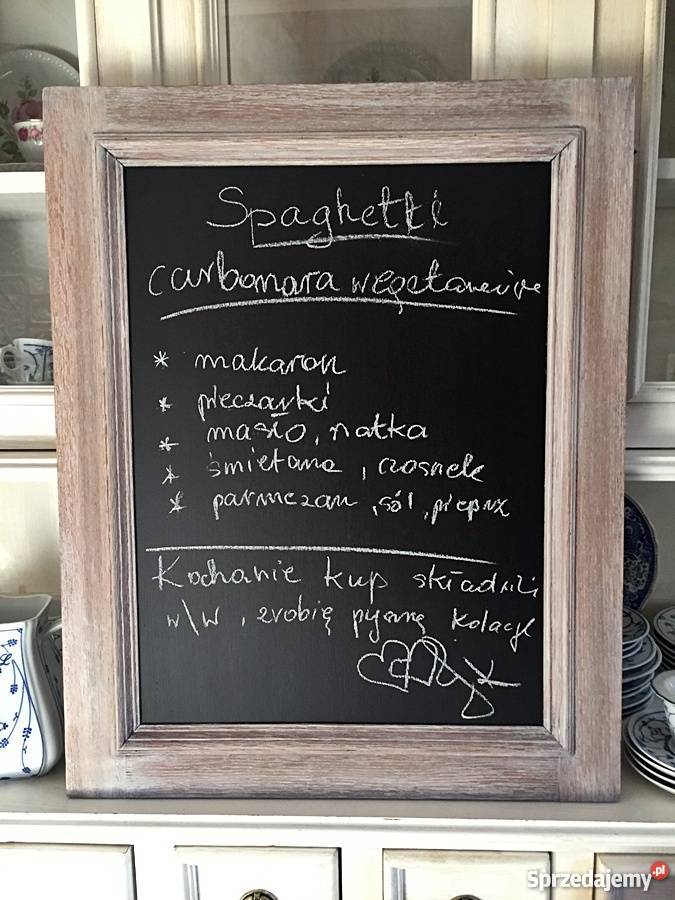 Spaghetti
carbonara wegetariańska
* makaron
* pieczarki
* masło, natka
* śmietana, czosnek
* parmezan, sól, pieprz
Kochanie kup składniki
w\w, zrobię pyszną kolację
Sprzedajemy.pl